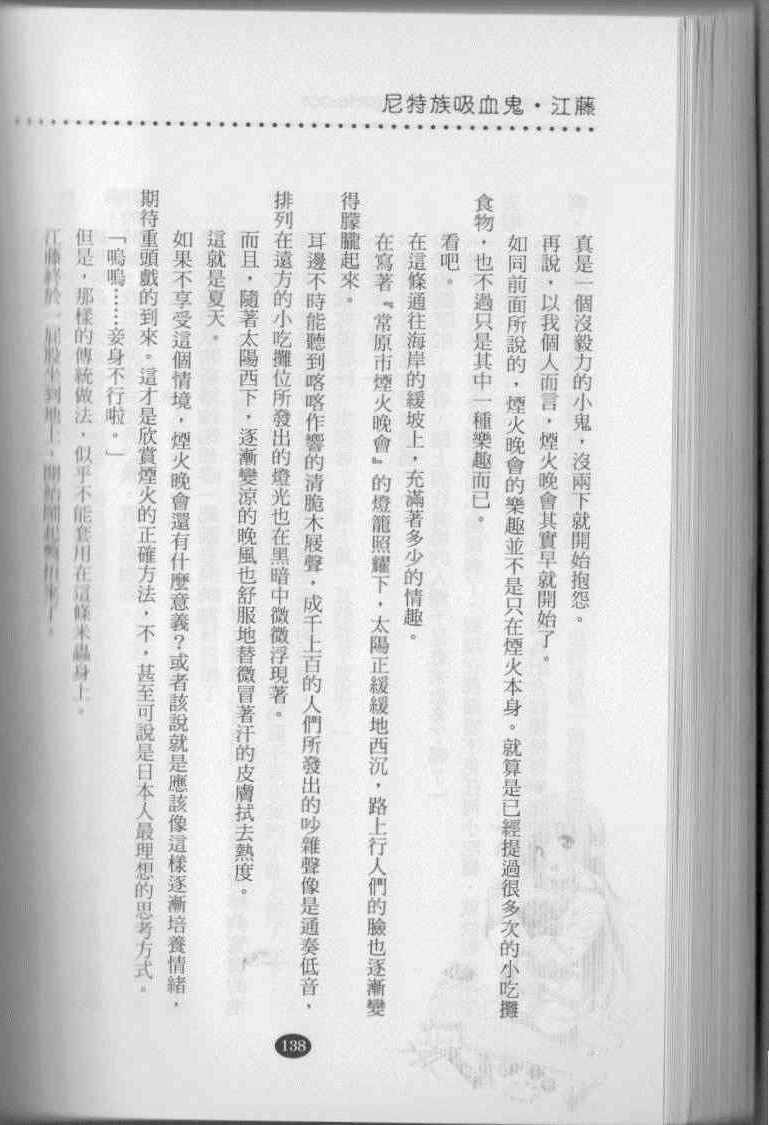 尼特族吸血鬼・江藤
真是一個沒毅力的小鬼，沒兩下就開始抱怨。
再說，以我個人而言，煙火晚會其實早就開始了。
如同前面所說的，煙火晚會的樂趣並不是只在煙火本身。就算是已經提過很多次的小吃攤
食物，也不過只是其中一種樂趣而已。
看吧。
在這條通往海岸的緩坡上，充滿著多少的情趣。
在寫著『常原市煙火晚會』的燈籠照耀下，太陽正緩緩地西沉，路上行人們的臉也逐漸變
得朦朧起來。
耳邊不時能聽到喀喀作響的清脆木屐聲，成千上百的人們所發出的吵雜聲像是通奏低音，
排列在遠方的小吃攤位所發出的燈光也在黑暗中微微浮現著。
而且，隨著太陽西下，逐漸變涼的晚風也舒服地替微冒著汗的皮膚拭去熱度。
這就是夏天。
如果不享受這個情境，煙火晚會還有什麼意義？或者該說就是應該像這樣逐漸培養情緒，
期待重頭戲的到來。這才是欣賞煙火的正確方法，不，甚至可說是日本人最理想的思考方式。
「嗚嗚……妾身不行啦。」
但是，那樣的傳統做法，似乎不能套用在這條米蟲身上。
江藤終於一屁股坐到地上，開始鬧起彆扭來了。
138